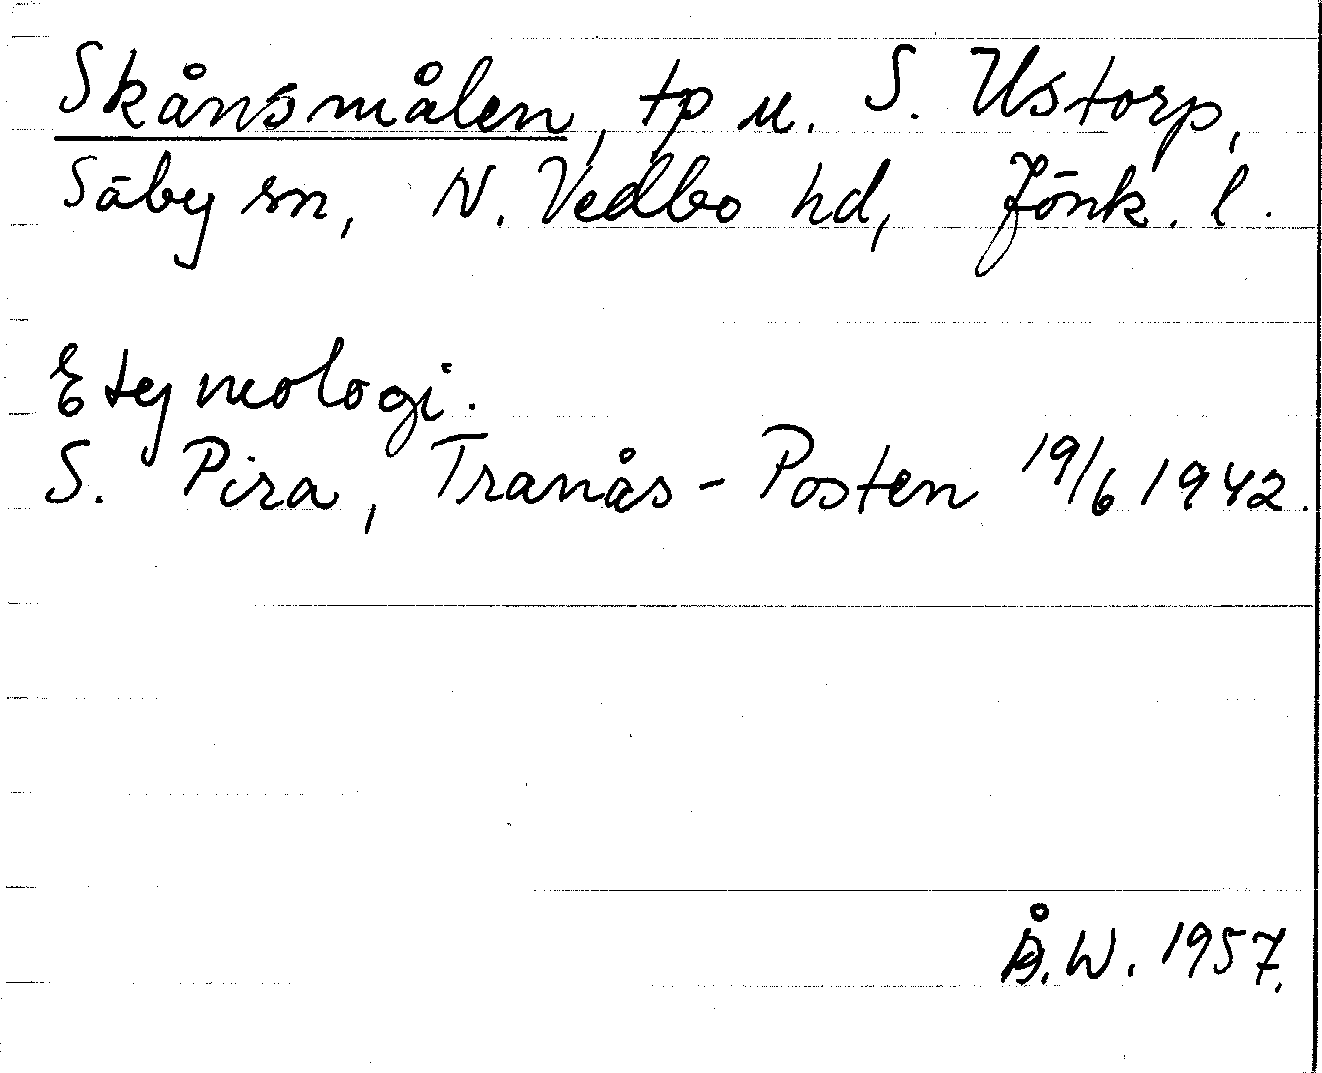 Skånsmålen, tp u. S. Ustorp,
Säby sn, N. Vedbo hd, Jönk. l.
Etymologi.
S. Pira, Tranås-Posten 19/6 1942.
Å.W. 1957.